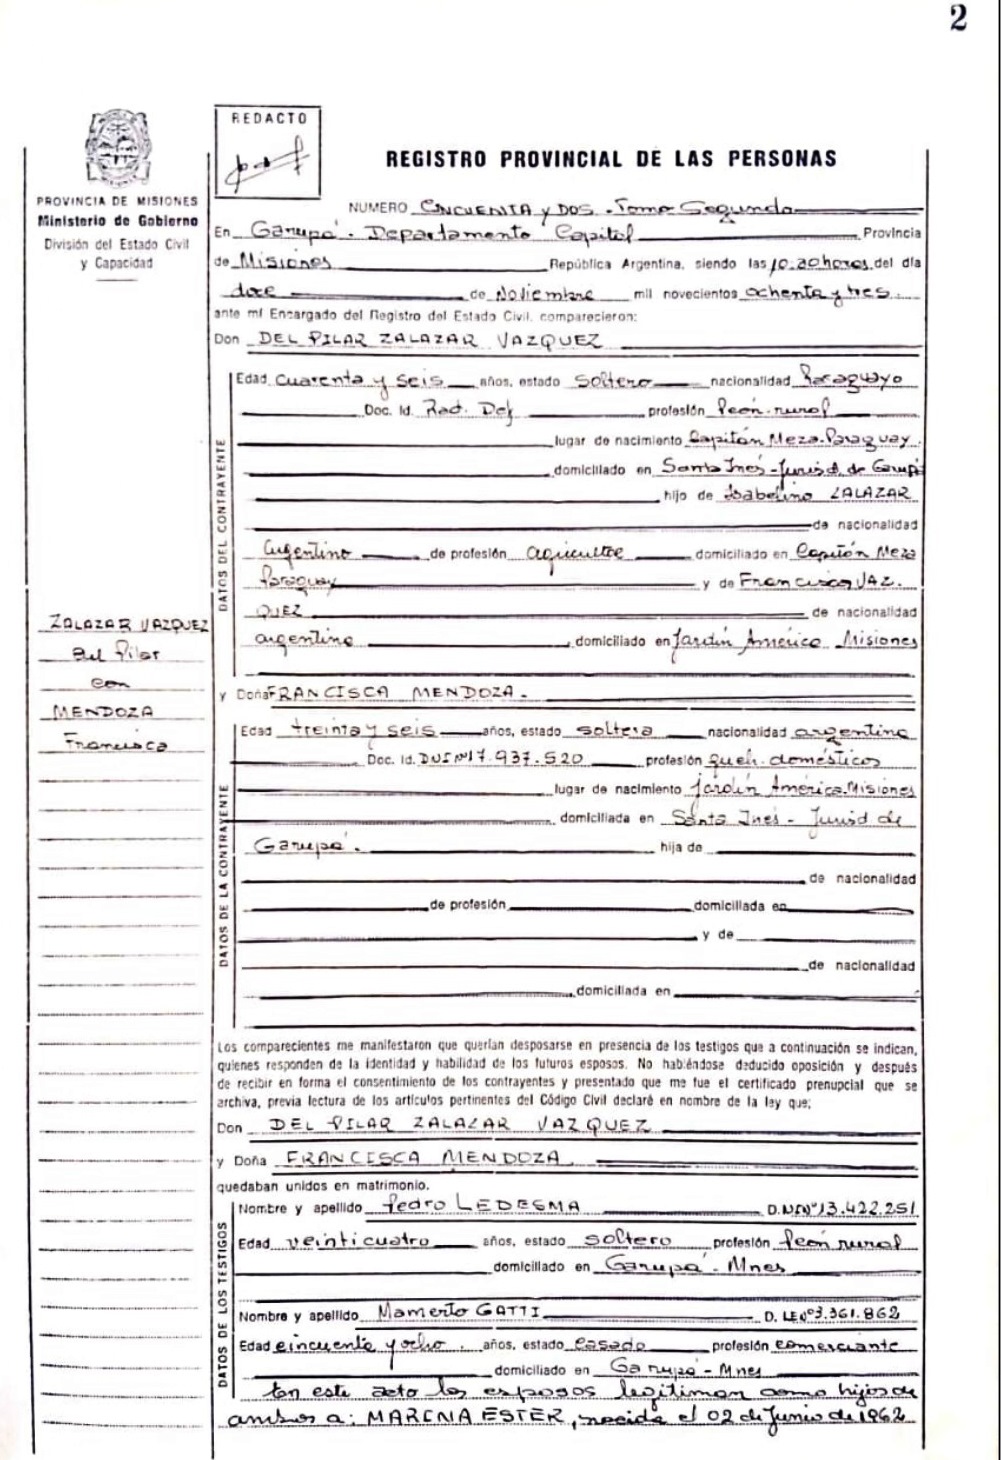 2
REDACTO
REGISTRO PROVINCIAL DE LAS PERSONAS
PROVINCIA DE MISIONES
Ministerio de Gobierno
División del Estado Civil
y Capacidad
NUMERO CINCUENTA y DOS - Tomo Segundo
En Garupá - Departamento Capital Provincia
de Misiones República Argentina, siendo las 10.20 horas del día
doce de Noviembre mil novecientos ochenta y tres.
ante mí Encargado del Registro del Estado Civil, comparecieron:
Don DEL PILAR ZALAZAR VAZQUEZ
DATOS DEL CONTRAYENTE
Edad cuarenta y seis años, estado soltero nacionalidad Paraguayo
Doc. Id. Rad. Def profesión Peón rural
lugar de nacimiento Capitán Meza-Paraguay.
domiciliado en Santa Inés - Jurisd. de Garupá
hijo de Isabelino ZALAZAR
de nacionalidad
Argentino de profesión agricultor domiciliado en Capitán Meza
Paraguay y de Francisca VAZ-
QUEZ de nacionalidad
argentina domiciliado en Jardín América Misiones
ZALAZAR VAZQUEZ
Del Pilar
con
MENDOZA
Francisca
y Doña FRANCISCA MENDOZA.
DATOS DE LA CONTRAYENTE
Edad treinta y seis años, estado soltera nacionalidad argentina
Doc. Id. DNI Nº 17.937.520 profesión queh. domésticos
lugar de nacimiento Jardín América. Misiones
domiciliada en Santa Inés - Jurisd de
Garupá. hija de
de nacionalidad
de profesión domiciliada en
y de
de nacionalidad
domiciliada en
Los comparecientes me manifestaron que querían desposarse en presencia de los testigos que a continuación se indican,
quienes responden de la identidad y habilidad de los futuros esposos. No habiéndose deducido oposición y después
de recibir en forma el consentimiento de los contrayentes y presentado que me fue el certificado prenupcial que se
archiva, previa lectura de los artículos pertinentes del Código Civil declaré en nombre de la ley que;
Don DEL PILAR ZALAZAR VAZQUEZ
y Doña FRANCISCA MENDOZA
quedaban unidos en matrimonio.
DATOS DE LOS TESTIGOS
Nombre y apellido Pedro LEDESMA D.NI Nº 13.422.251
Edad veinticuatro años, estado soltero profesión Peón rural
domiciliado en Garupá - Mnes
Nombre y apellido Mamerto GATTI D. LE Nº 3.361.862
Edad cincuenta y ocho. años, estado casado profesión comerciante
domiciliado en Garupá - Mnes
En este acto los esposos legitiman como hijos de
ambos a: MARINA ESTER, nacida el 02 de Junio de 1962